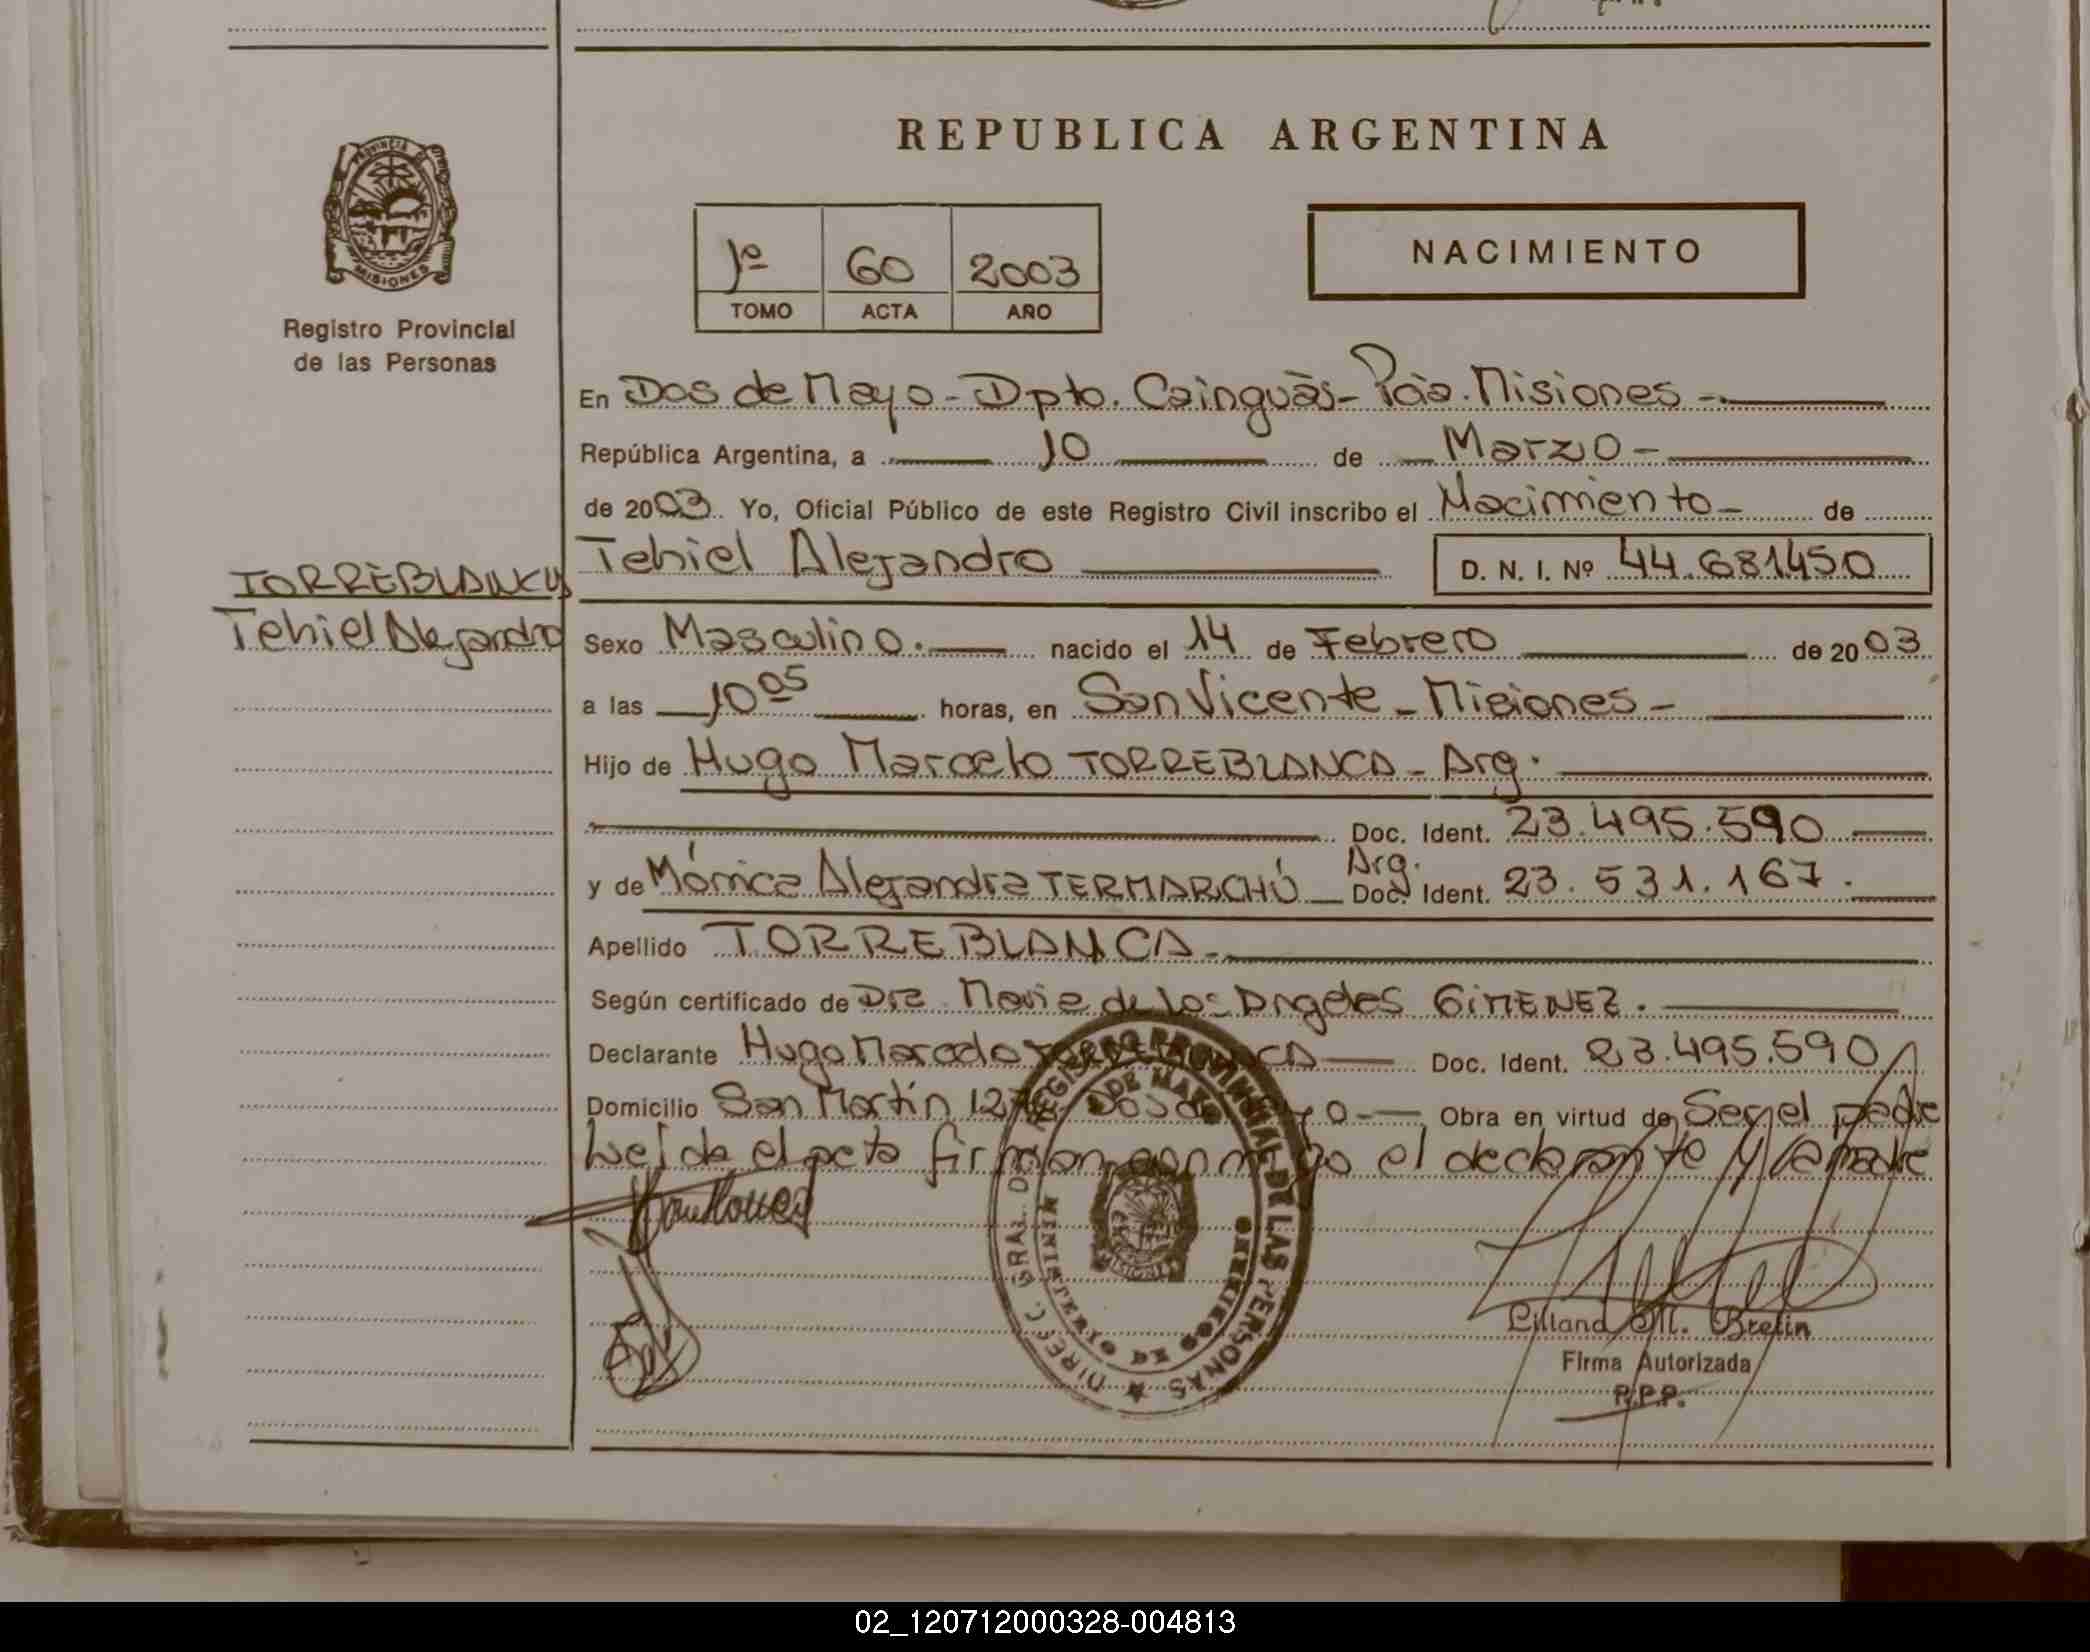 REPUBLICA ARGENTINA
PROVINCIA DE
MISIONES
Registro Provincial
de las Personas
1º 60 2003
TOMO ACTA AÑO
NACIMIENTO
En Dos de Mayo - Dpto. Cainguás - Pcia. Misiones -
República Argentina, a 10 de Marzo -
de 2003 Yo, Oficial Público de este Registro Civil inscribo el Nacimiento - de
Tehiel Alejandro D. N. I. Nº 44.681450
TORREBLANCA
Tehiel Alejandro
Sexo Masculino. nacido el 14 de Febrero de 2003
a las 10 05 horas, en San Vicente - Misiones -
Hijo de Hugo Marcelo TORREBLANCA - Arg.
Doc. Ident. 23.495.590
y de Mónica Alejandra TERMARCHÚ Arg. Doc. Ident. 23.531.167.
Apellido TORREBLANCA -
Según certificado de Dra. Maria de los Angeles GIMENEZ.
Declarante Hugo Marcelo TORREBLANCA Doc. Ident. 23.495.590
Domicilio San Martín Dos de Mayo - Obra en virtud de Ser el padre
Leída el acta firman conmigo el declarante y la madre
DIREC. GRAL. DEL REGISTRO PROVINCIAL DE LAS PERSONAS
DOS DE MAYO
MISIONES
MINISTERIO DE
Liliana M. Brelin
Firma Autorizada
R.P.P.
02_120712000328-004813